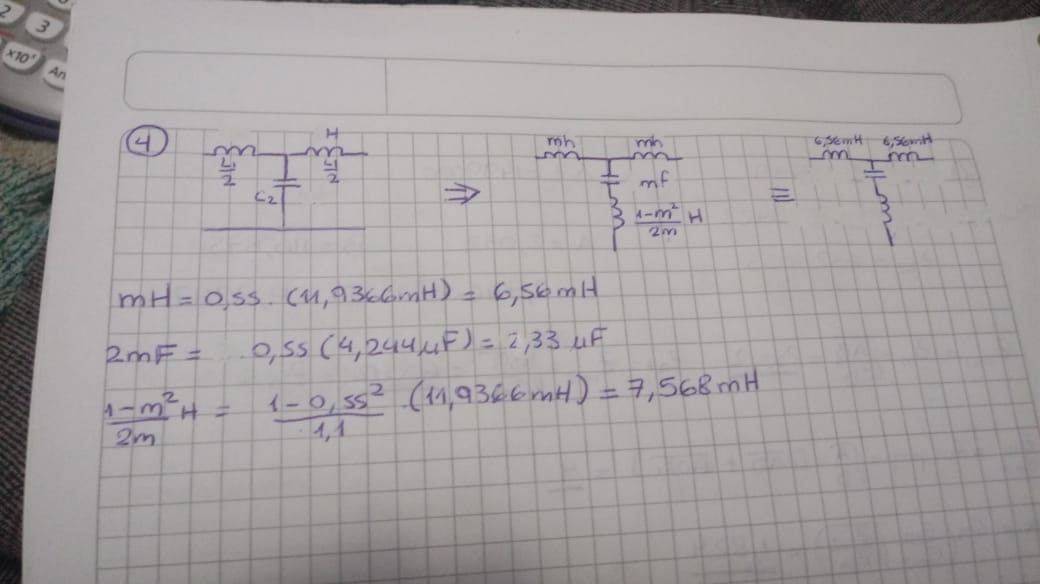 2
3
x10ˣ
An
④
H
L₁/2
L₁/2
C₂
⇒
mh
mh
mf
1-m²/2m H
≡
6,56mH 6,56mH
mH = 0,55. (11,9366mH) = 6,56mH
2mF = 0,55 (4,244µF) = 2,33 µF
1-m²/2m H = 1-0,55²/1,1 (11,9366mH) = 7,568mH